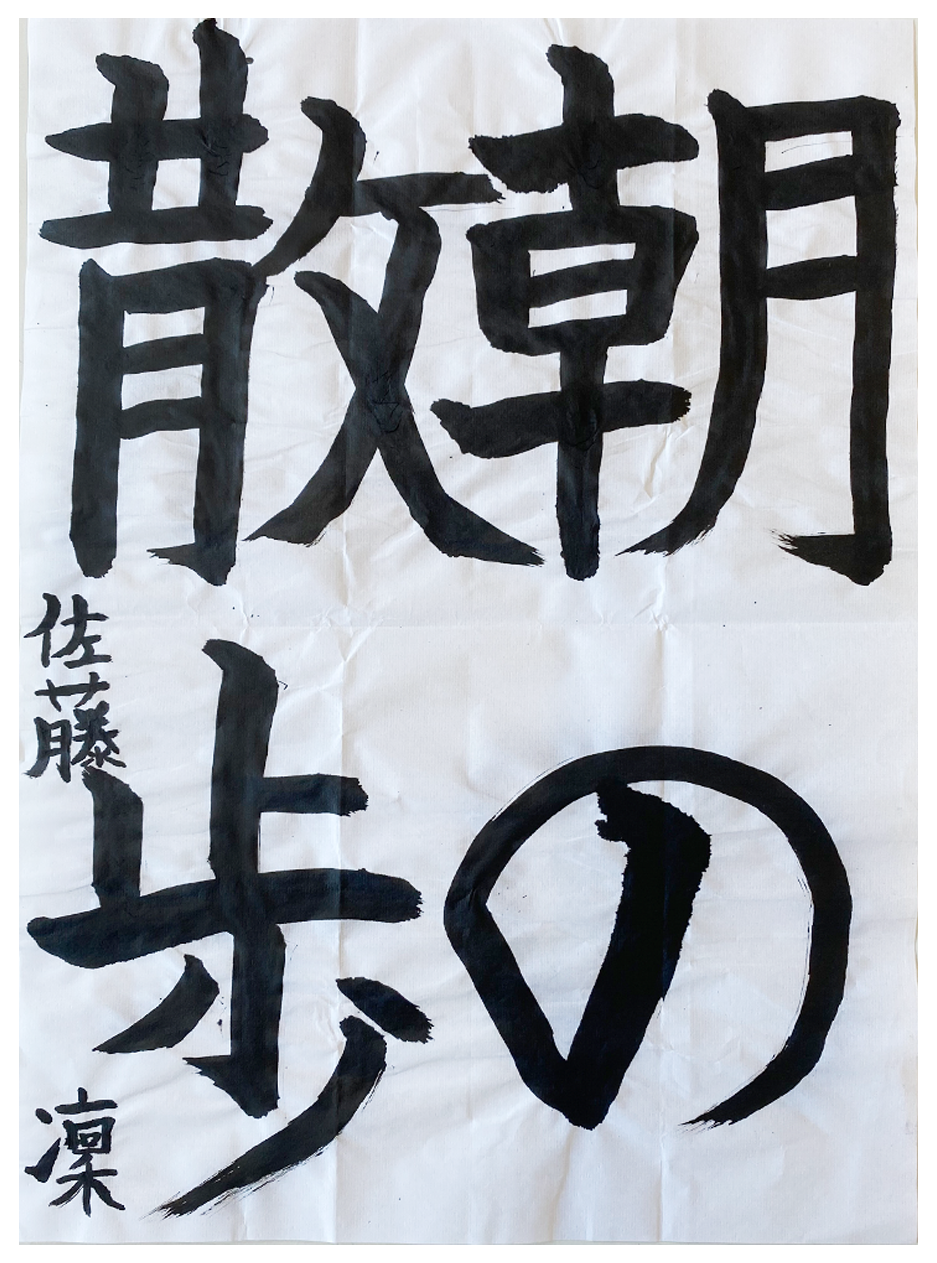 朝の
散歩
佐藤凜